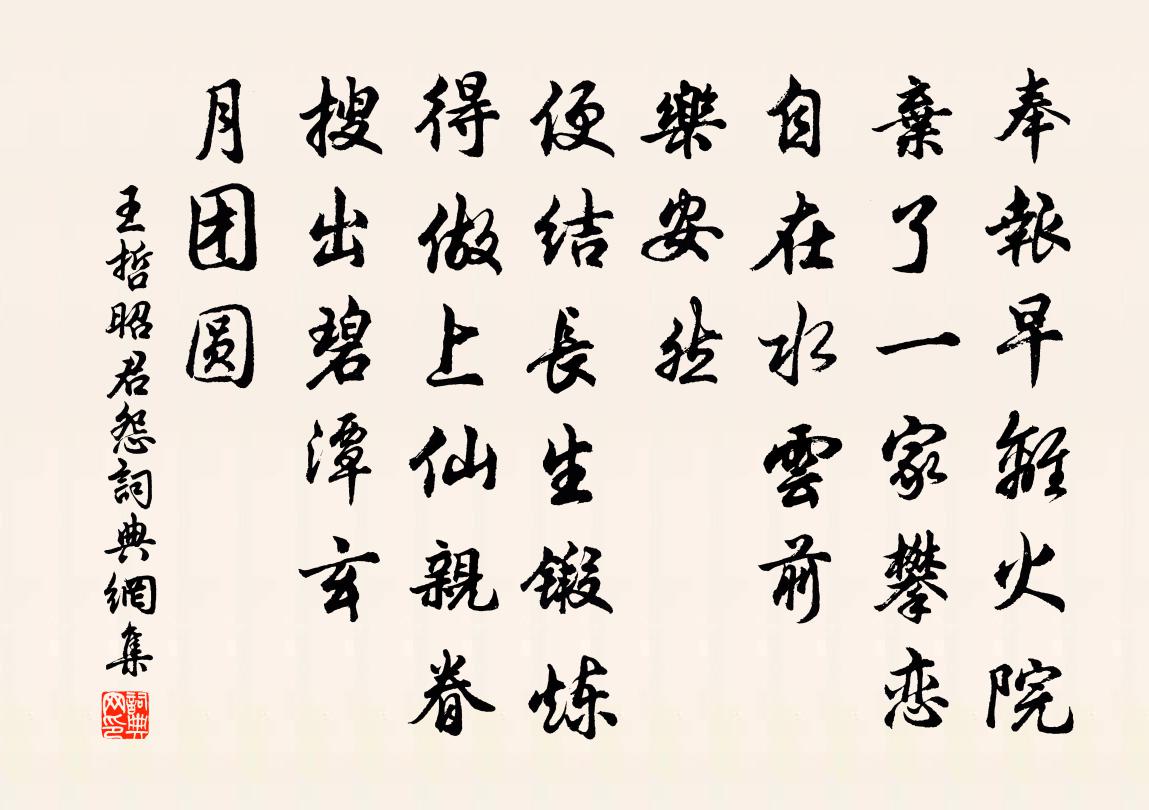 奉報早離火院
棄了一家攀恋
自在水雲前
樂安然
便结長生鍛炼
得做上仙親眷
搜出碧潭玄
月团圆
王哲昭君怨詞典網集
詞典网印